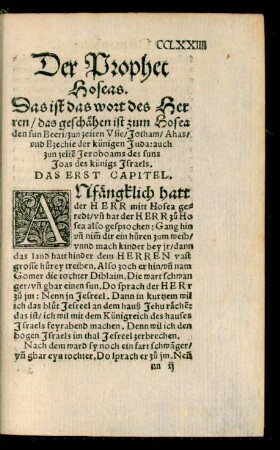 CCLXXIIII
Der Prophet
Hoseas.
Das ist das wort des Her
ren/das geschähen ist zum Hosea
den sun Beeri/zun zeiten Vsie/Jotham/Ahas/
vnd Ezechie der künigen Juda: auch
zun zeitē Jeroboams des suns
Joas des künigs Israels.
DAS ERST CAPITEL.
ANfängklich hatt
der HERR mitt Hosea ge-
redt/vñ hat der HERR zů Ho
sea also gesprochen: Gang hin
vñ nim̃ dir ein hůren zum weib/
vnnd mach kinder bey jr/dann
das land hatt hinder dem HERREN vast
grosse hůrey triben. Also zoch er hin/vñ nam
Gomer die tochter Diblaim. Die warf schwan
ger/vñ gbar einen sun. Do sprach der HERr
zů jm: Nenn jn Jesreel. Dann in kurtzem wil
ich das blůt Jesreel an dem hauß Jehu rächē:
das ist/ich wil mit dem Künigreich des hauses
Israels feyrabend machen. Denn wil ich den
bogen Israels im thal Jesreel zerbrechen.
Nach dem ward sy noch ein fart schwäger/
vñ gbar eyn tochter. Do sprach er zů jm. Neñ
nn ij